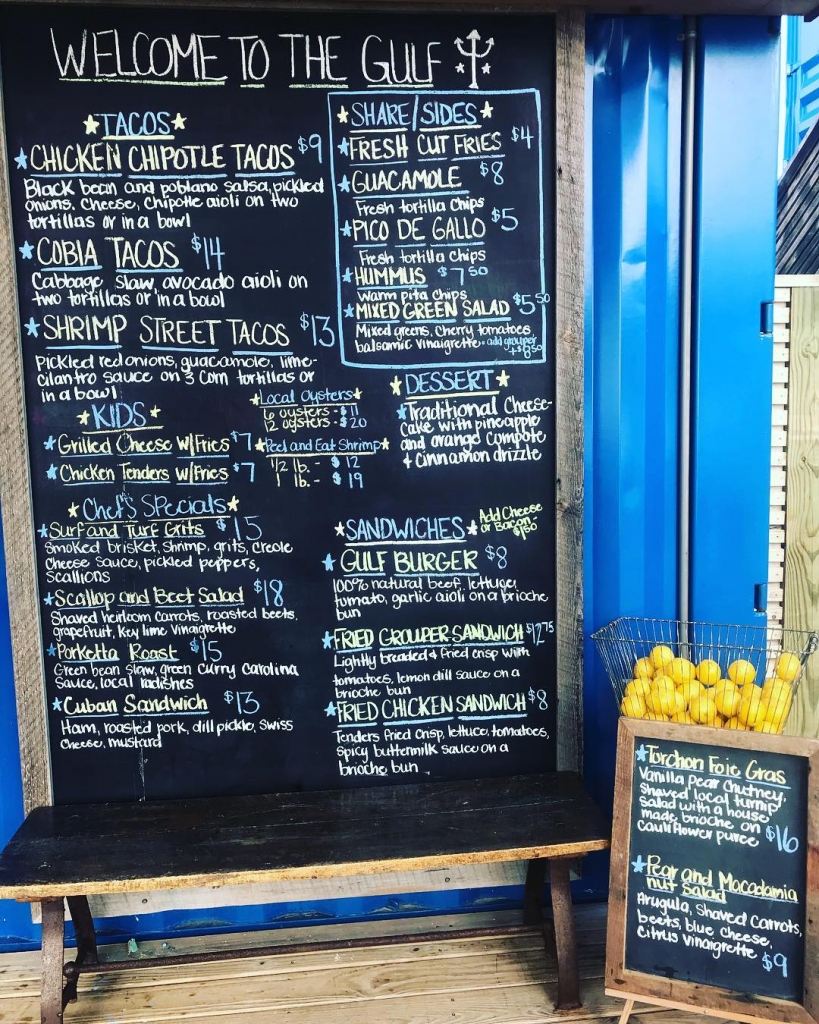 WELCOME TO THE GULF
TACOS
CHICKEN CHIPOTLE TACOS $9
Black bean and poblano salsa, pickled
onions, cheese, chipotle aioli on two
tortillas or in a bowl
COBIA TACOS $14
Cabbage slaw, avocado aioli on
two tortillas or in a bowl
SHRIMP STREET TACOS $13
Pickled red onions, guacamole, lime-
cilantro sauce on 3 corn tortillas or
in a bowl
KIDS
Grilled Cheese w/Fries $7
Chicken Tenders w/Fries $7
Local Oysters
6 oysters - $11
12 oysters - $20
Peel and Eat Shrimp
1/2 lb. - $12
1 lb. - $19
Chef's Specials
Surf and Turf Grits $15
Smoked brisket, shrimp, grits, creole
cheese sauce, pickled peppers,
scallions
Scallop and Beet Salad $18
Shaved heirloom carrots, roasted beets,
grapefruit, key lime vinaigrette
Porketta Roast $15
Green bean slaw, green curry Carolina
Sauce, local radishes
Cuban Sandwich $13
Ham, roasted pork, dill pickle, Swiss
cheese, mustard
SHARE/SIDES
FRESH CUT FRIES $4
GUACAMOLE $8
Fresh tortilla chips
PICO DE GALLO $5
Fresh tortilla chips
HUMMUS $7.50
Warm pita chips
MIXED GREEN SALAD $5.50
Mixed greens, cherry tomatoes
balsamic vinaigrette - add grouper
+$8.50
DESSERT
Traditional Cheese-
cake with pineapple
and orange compote
+ cinnamon drizzle
SANDWICHES
Add Cheese
or Bacon -
$1.50
GULF BURGER $8
100% natural beef, lettuce,
tomato, garlic aioli on a brioche
bun
FRIED GROUPER SANDWICH $12.75
Lightly breaded & fried crisp with
tomatoes, lemon dill sauce on a
brioche bun
FRIED CHICKEN SANDWICH $8
Tenders fried crisp, lettuce, tomatoes,
spicy buttermilk sauce on a
brioche bun
Torchon Foie Gras
Vanilla pear chutney,
shaved local turnip
salad with a house
made brioche on
cauliflower puree $16
Pear and Macadamia
nut Salad
Arugula, shaved carrots,
beets, blue cheese,
citrus vinaigrette $9